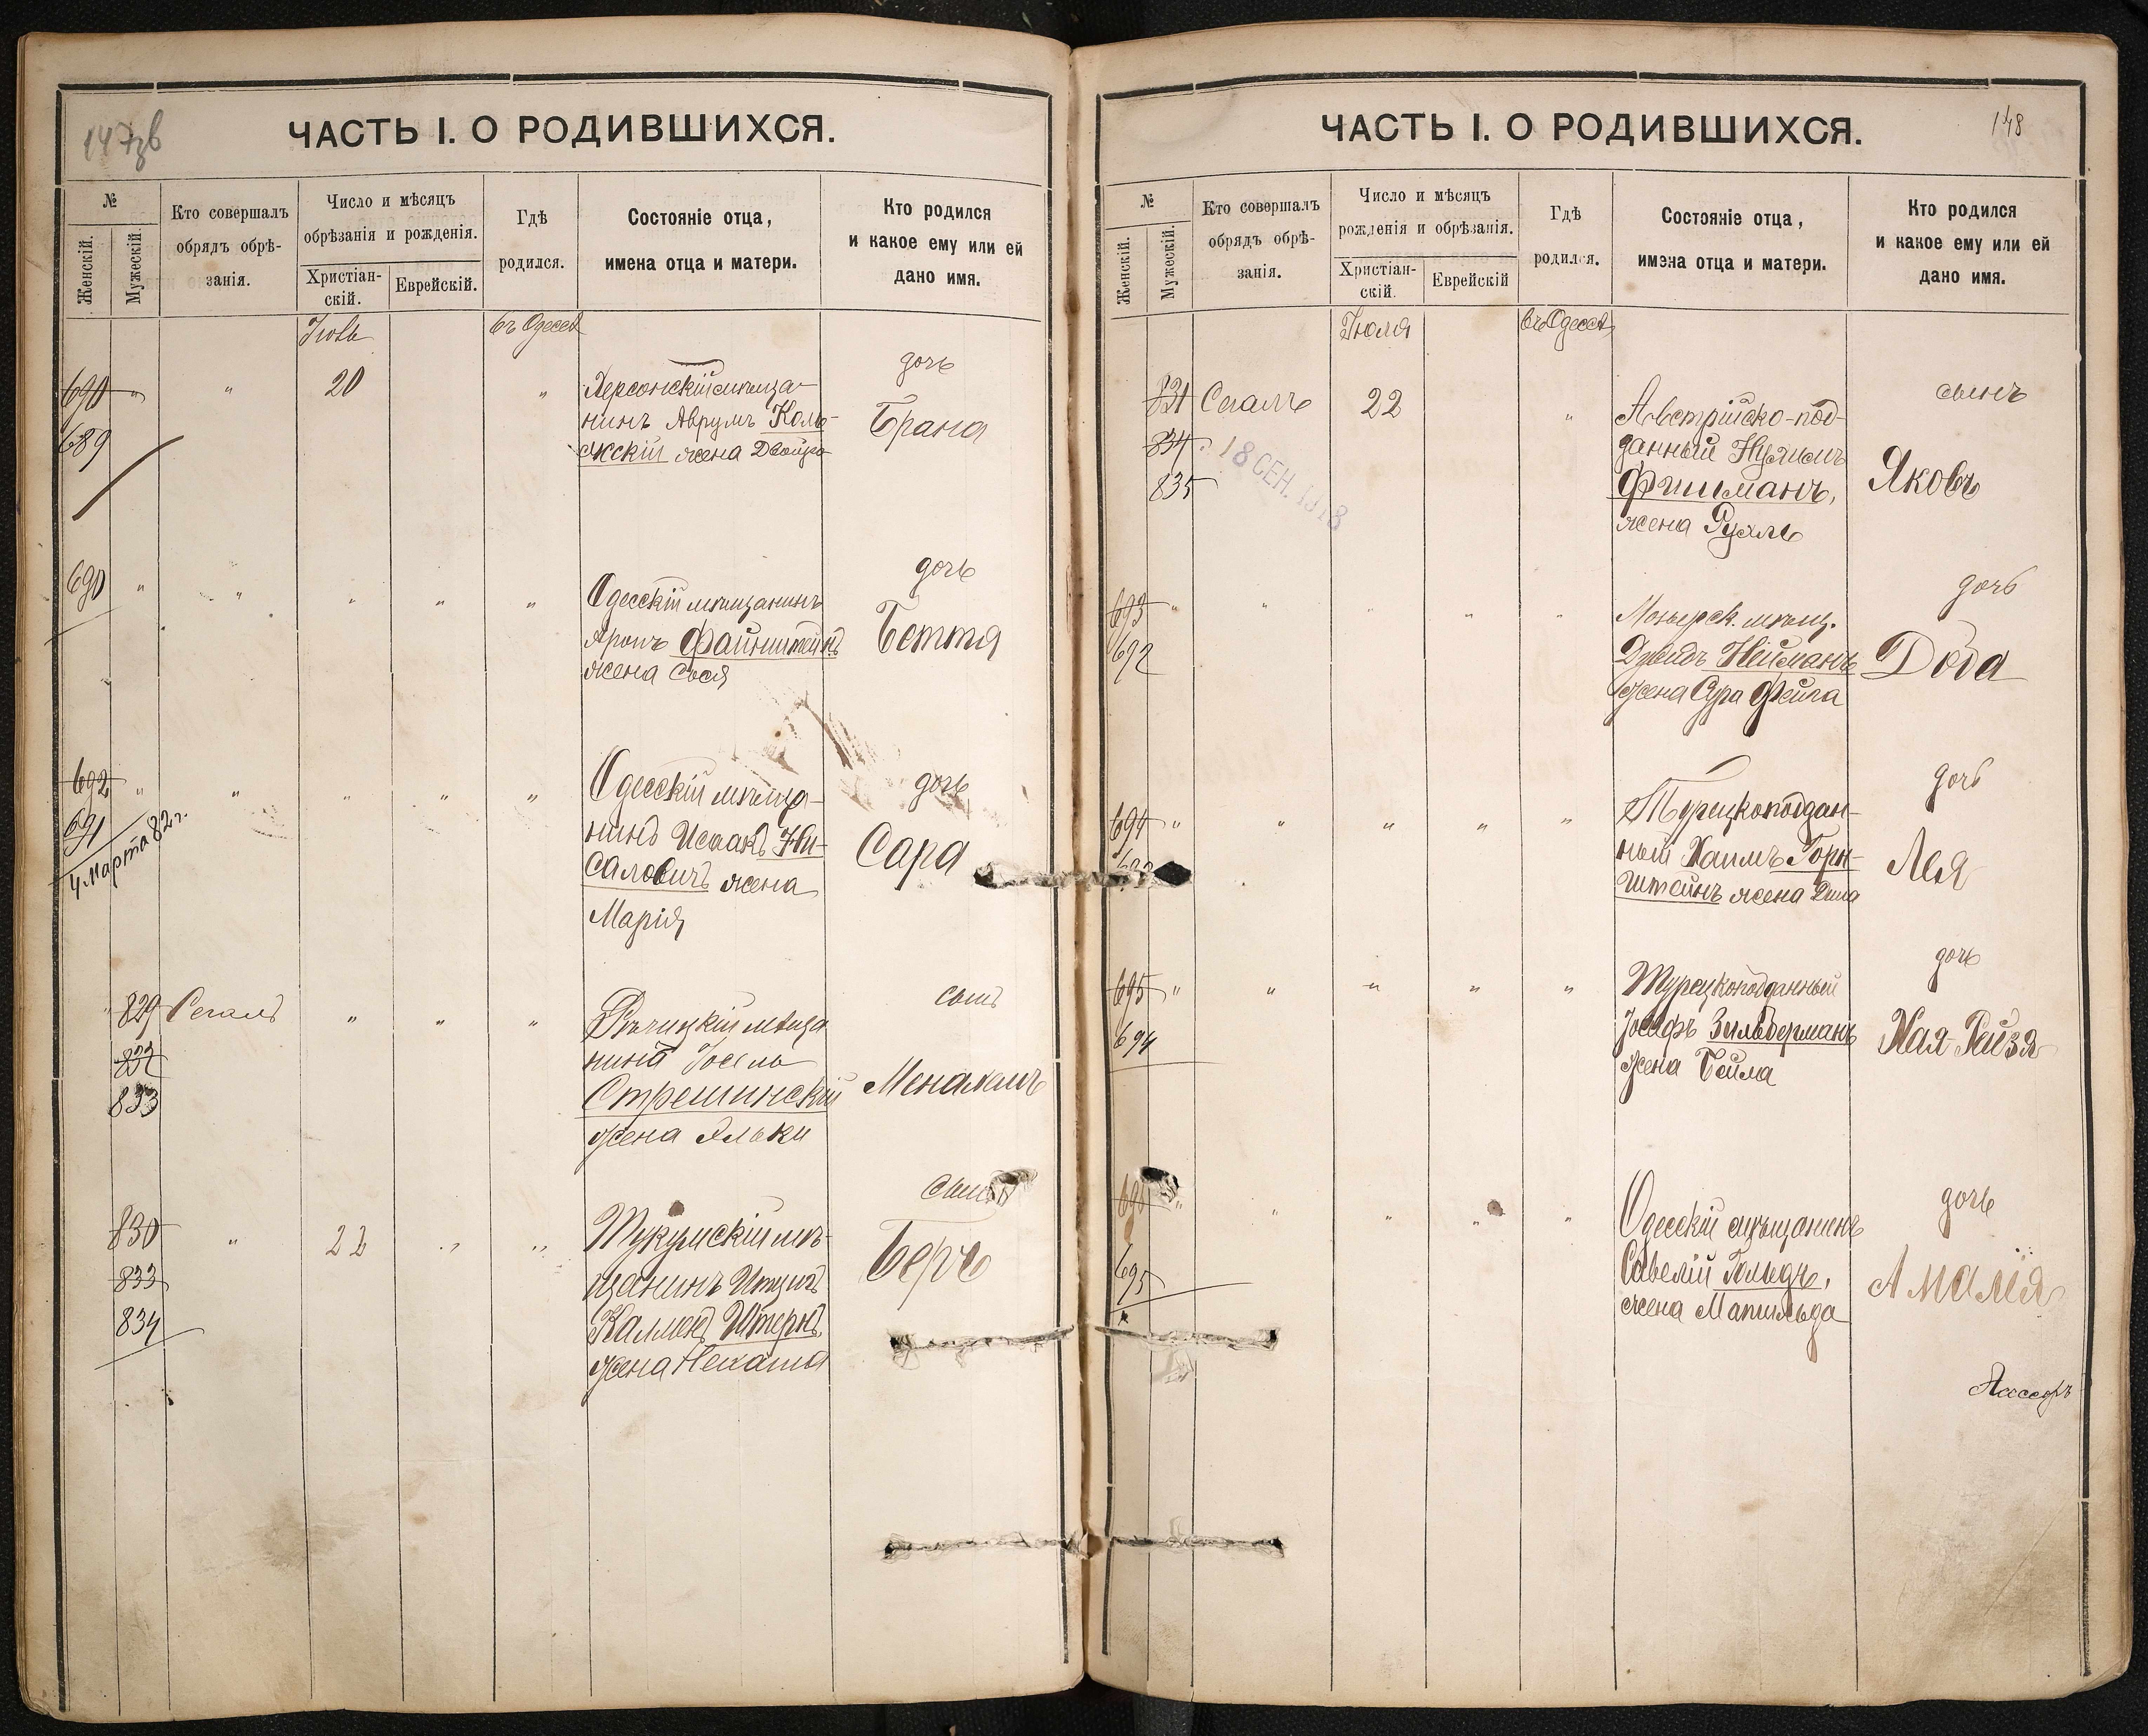 147об
ЧАСТЬ I. О РОДИВШИХСЯ.
№
Женскій.
Мужескій.
Кто совершалъ
обрядъ обрѣ-
занія.
Число и мѣсяцъ
обрѣзанія и рожденія.
Христіан-
скій.
Еврейскій.
Гдѣ
родился.
Состояніе отца,
имена отца и матери.
Кто родился
и какое ему или ей
дано имя.
въ Одессѣ
690 " " 20 "
689
Херсонскій мѣща-
нинъ Аврумъ
жена Двойра
дочь
Брана
690 " " " " "
Одесскій мѣщанинъ
Аронъ Файнштейнъ
жена Сося
дочь
Беття
692 " " " " "
691
4 Марта 82 г.
Одесскій мѣща-
нинъ Исаакъ Ни-
саловичъ жена
Марія
дочь
Сара
" 829 Сегалъ " " "
832
833
Рѣчицкій мѣща
нинъ Іосель
Стрешинскій
жена Элька
сынъ
Менахемъ
830 " 22 " "
833
834
Тукумскій мѣ-
щанинъ Ицигъ
Калменъ Штернъ
жена Нехама
сынъ
Беръ
148
ЧАСТЬ I. О РОДИВШИХСЯ.
№
Женскій.
Мужескій.
Кто совершалъ
обрядъ обрѣ-
занія.
Число и мѣсяцъ
рожденія и обрѣзанія.
Христіан-
скій.
Еврейскій
Гдѣ
родился.
Состояніе отца,
имена отца и матери.
Кто родился
и какое ему или ей
дано имя.
Іюля
въ Одессѣ
831 Сегалъ 22 "
834
835
18 СЕН. 1918
Австрійско-под-
данный Нухимъ
Фишманъ,
жена Рухль
сынъ
Яковъ
693 " " " " "
692
Мозырск. мѣщ.
Дувидъ Нейманъ
жена Сура Фейга
дочь
Доба
694 " " " " "
Турецкоподдан-
ный Хаимъ Горн-
штейнъ жена
дочь
Лея
695 " " " " "
694
Турецкоподданный
Іосифъ Зильберманъ
жена Бейла
дочь
Хая-Рейзя
" " " " "
695
Одесскій мѣщанинъ
Савелій
жена Матильда
дочь
Амалія